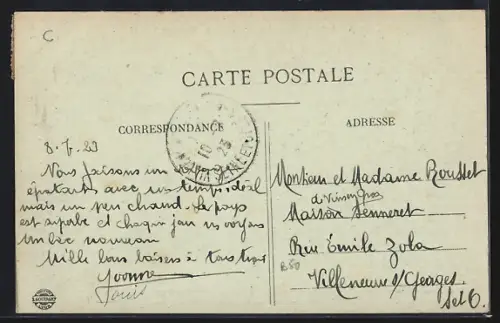 C
CARTE POSTALE
CORRESPONDANCE
ADRESSE
8.7.23
Nous faisons un
épatants avec un temps idéal
mais un peu chaud. Le pays
est superbe et chaque jour ns voyons
un lac nouveau
Mille bons baisers à tous trois
Yvonne
Louis
Monsieur et Madame Rousset
Maison Senneret
Rue Emile Zola
B50
Villeneuve s/ Georges
Set O.